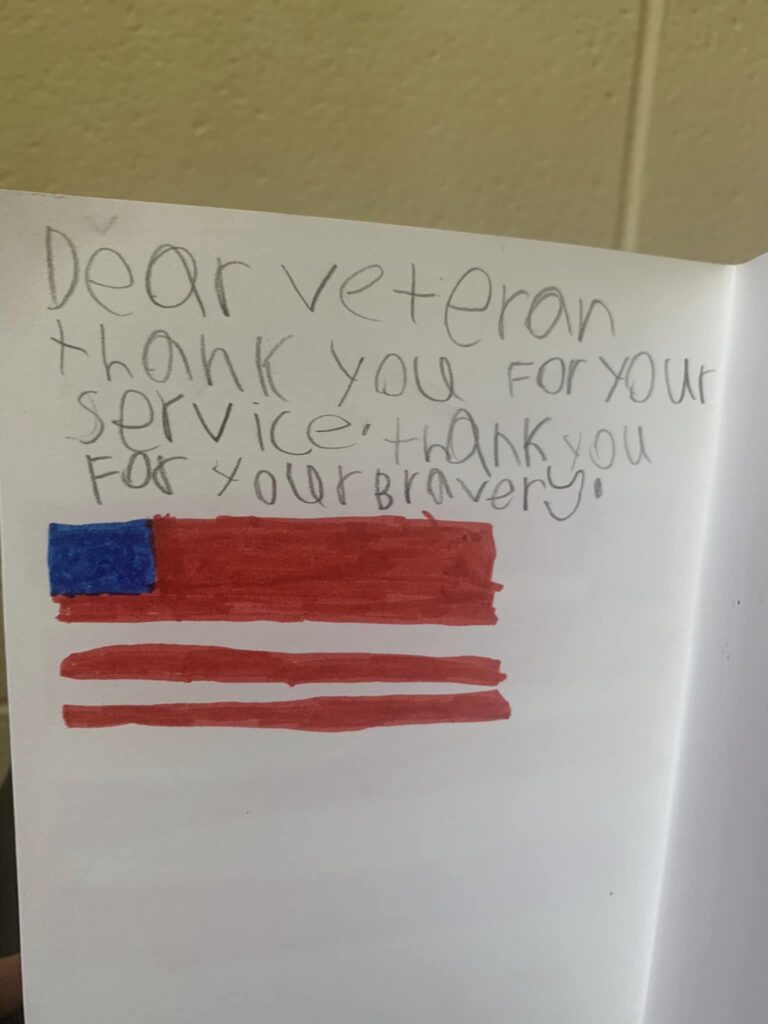 Dear veteran
thank you For your
service. thank you
For your Bravery.